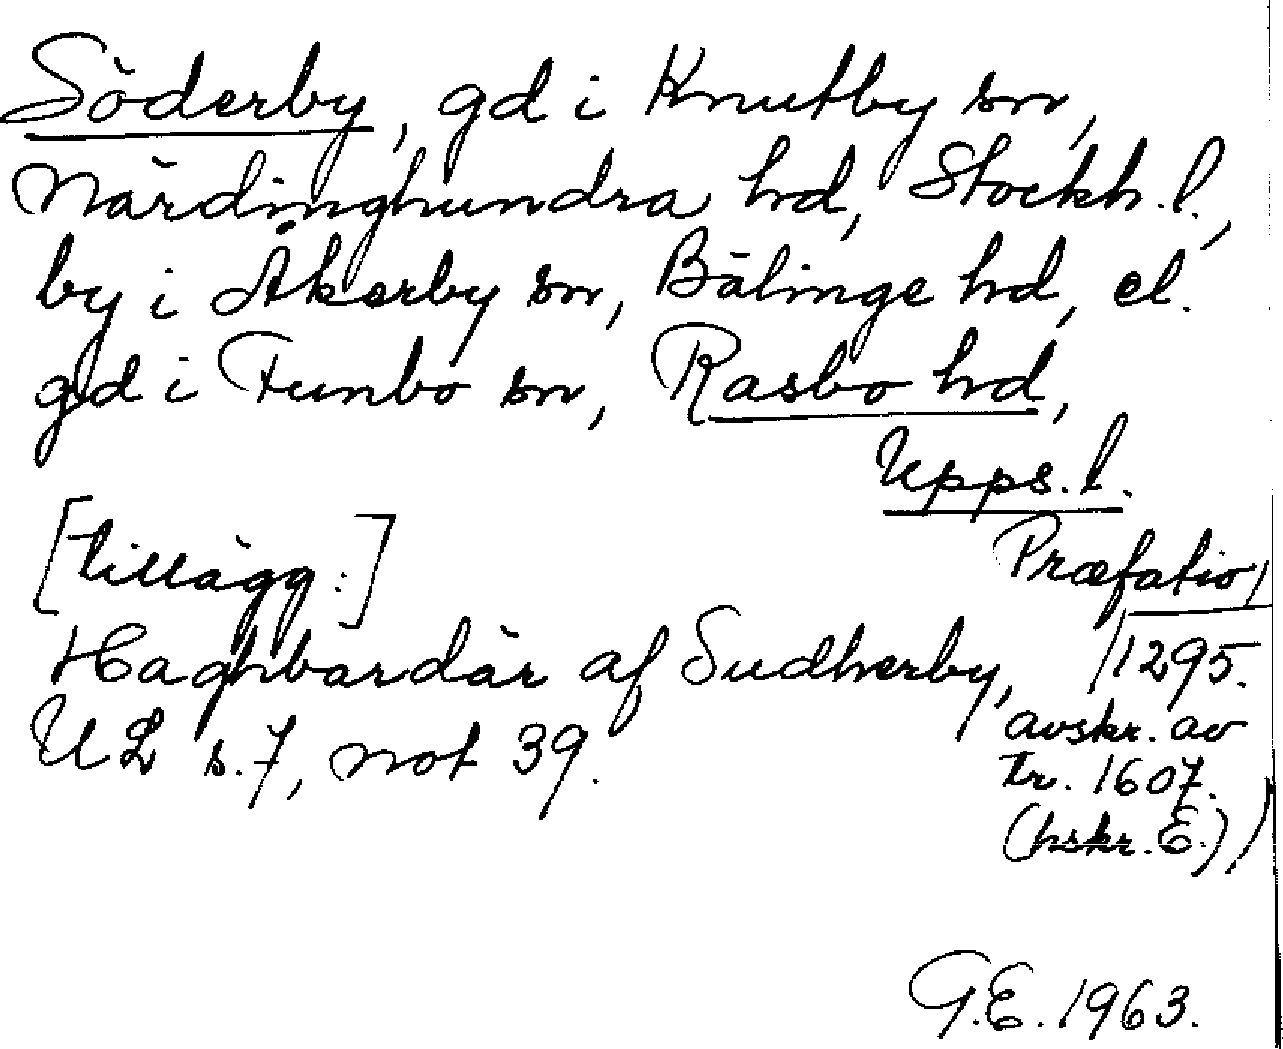 Söderby, gd i Knutby sn,
Närdinghundra hd, Stockh. l.,
by i Åkerby sn, Bälinge hd, el.
gd i Funbo sn, Rasbo hd,
Upps. l.
[tillägg:]
Præfatio,
Haghbardär af Sudherby, /1295.
UL s. 7, not 39.
avskr. av
tr. 1607.
(hskr. E.))
G.E. 1963.